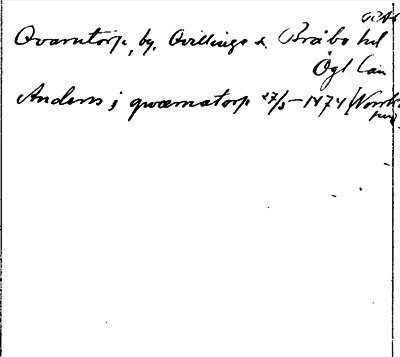 Qvarntorp, by, Qvillinge s. Bråbo hd
Ögl län
Anders j qwærnatorp 27/5 – 1474